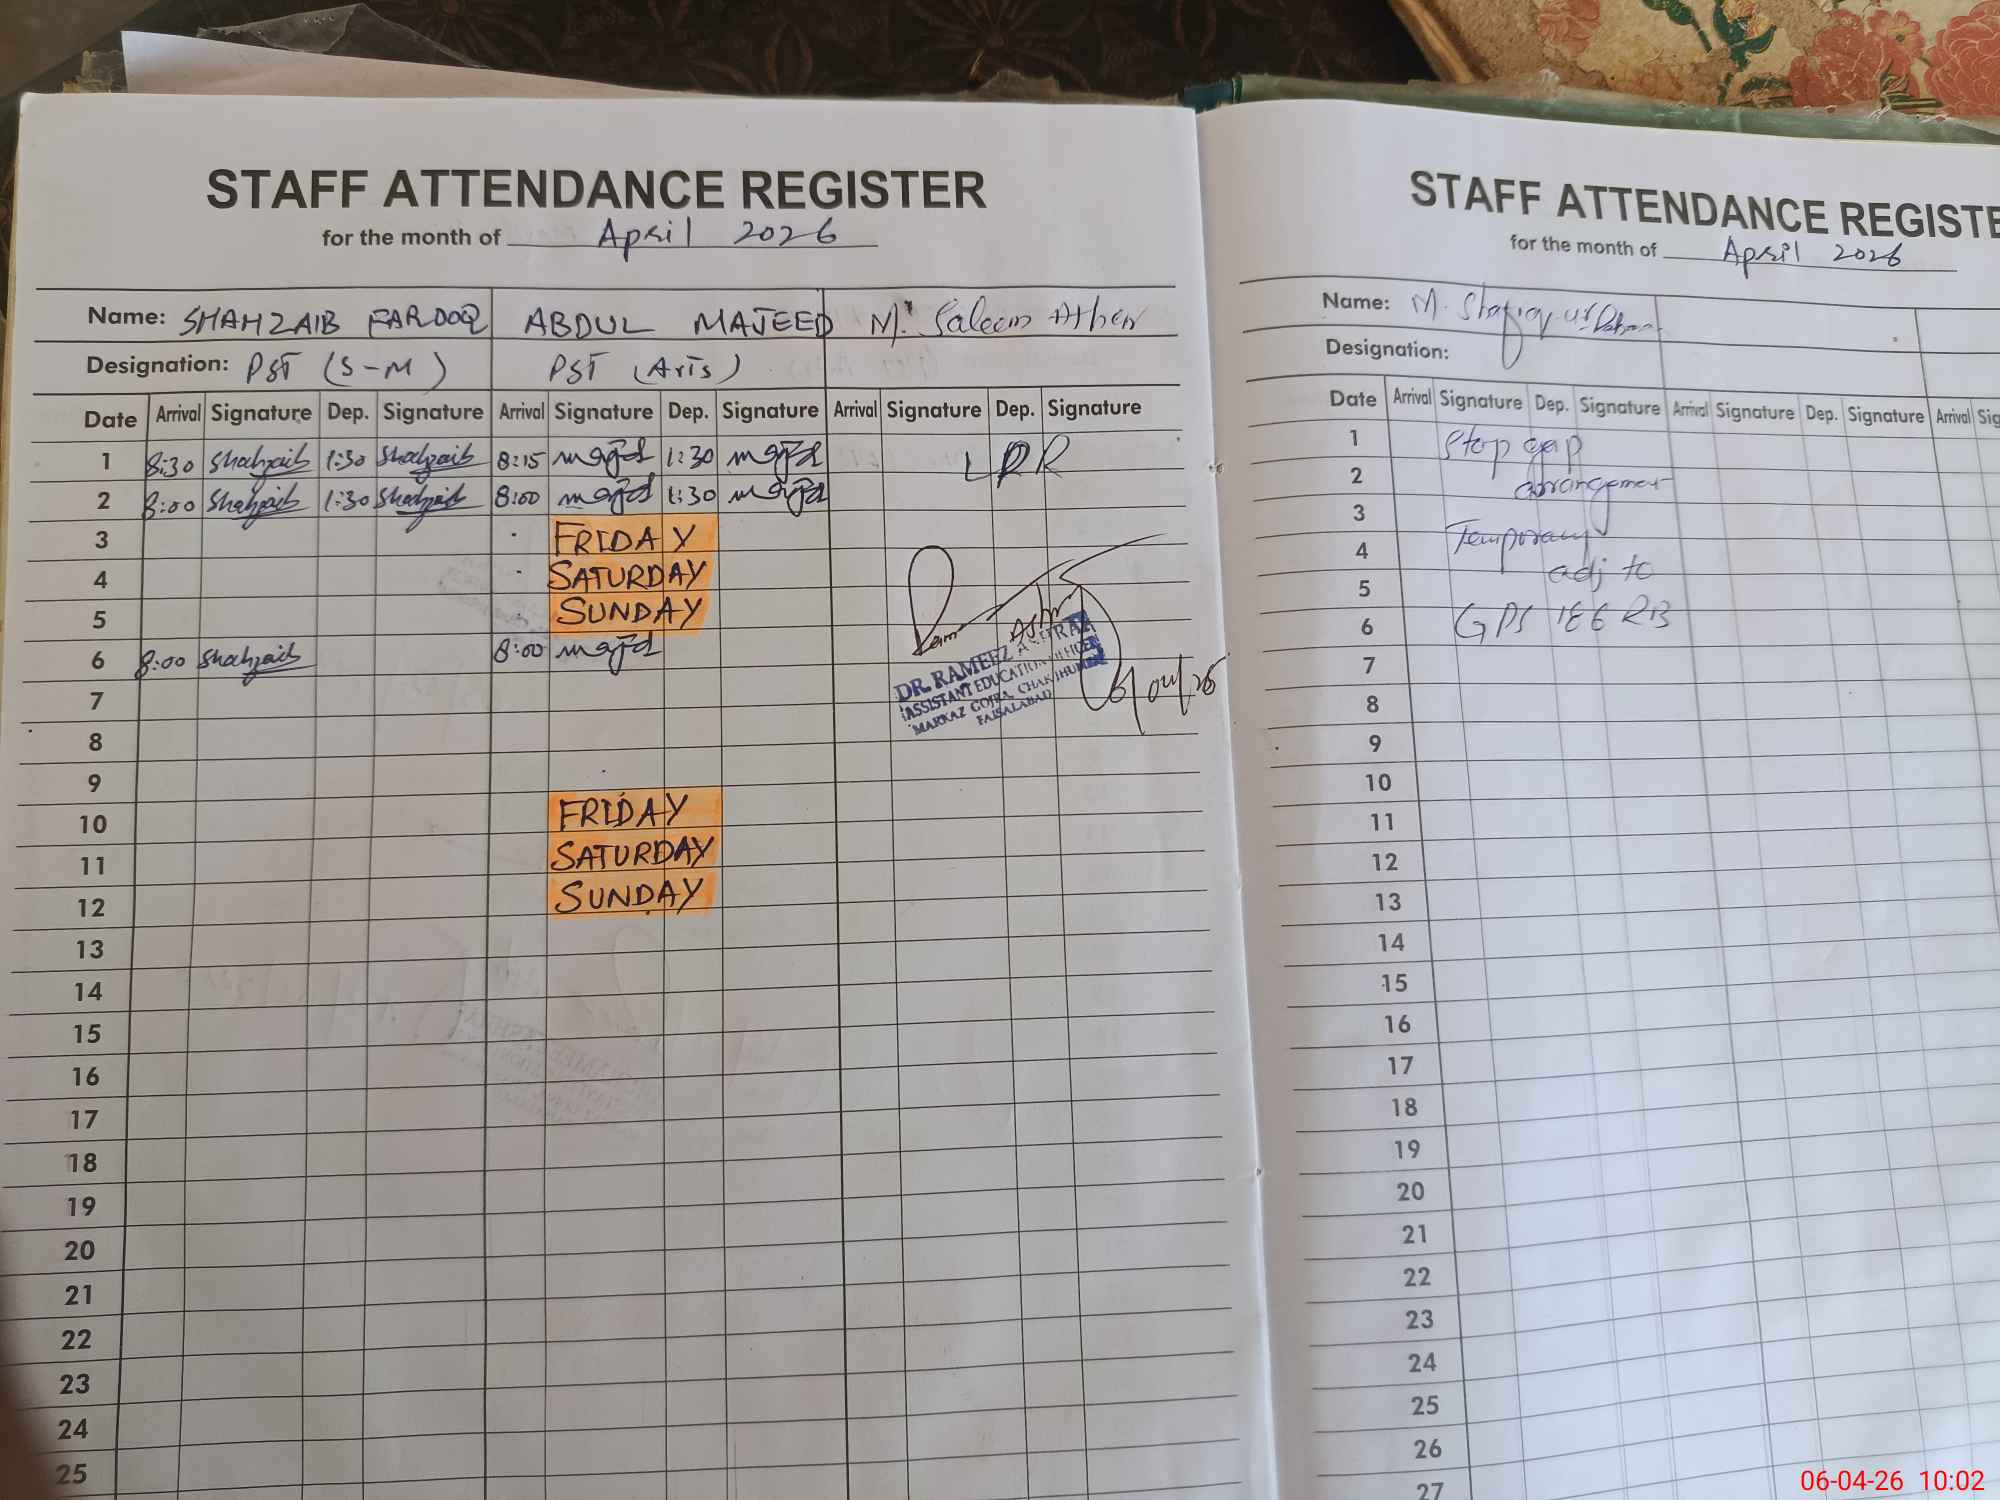 STAFF ATTENDANCE REGISTER
for the month of April 2026
Name: SHAHZAIB FAROOQ ABDUL MAJEED M. Saleem Ather
Designation: PST (S-M) PST (Arts)
Date Arrival Signature Dep. Signature Arrival Signature Dep. Signature Arrival Signature Dep. Signature
1 8:30 Shahzaib 1:30 Shahzaib 8:15 majid 1:30 majid LRR
2 8:00 Shahzaib 1:30 Shahzaib 8:00 majid 1:30 majid
3 FRIDAY
4 SATURDAY
5 SUNDAY
6 8:00 Shahzaib 8:00 majid
DR. RAMEEZ ASHRAF
ASSISTANT EDUCATION OFFICER
MARKAZ GOJRA, CHAK JHUMRA
FAISALABAD
6/04/26
7
8
9
10 FRIDAY
11 SATURDAY
12 SUNDAY
13
14
15
16
17
18
19
20
21
22
23
24
25
STAFF ATTENDANCE REGISTE
for the month of April 2026
Name: M. Shafiq ur Rehman
Designation:
Date Arrival Signature Dep. Signature Arrival Signature Dep. Signature Arrival Sig
1 Stop gap
2 arrangement
3
4 Temporary
5 adj to
6 GPS 186 RB
7
8
9
10
11
12
13
14
15
16
17
18
19
20
21
22
23
24
25
26
27
06-04-26 10:02